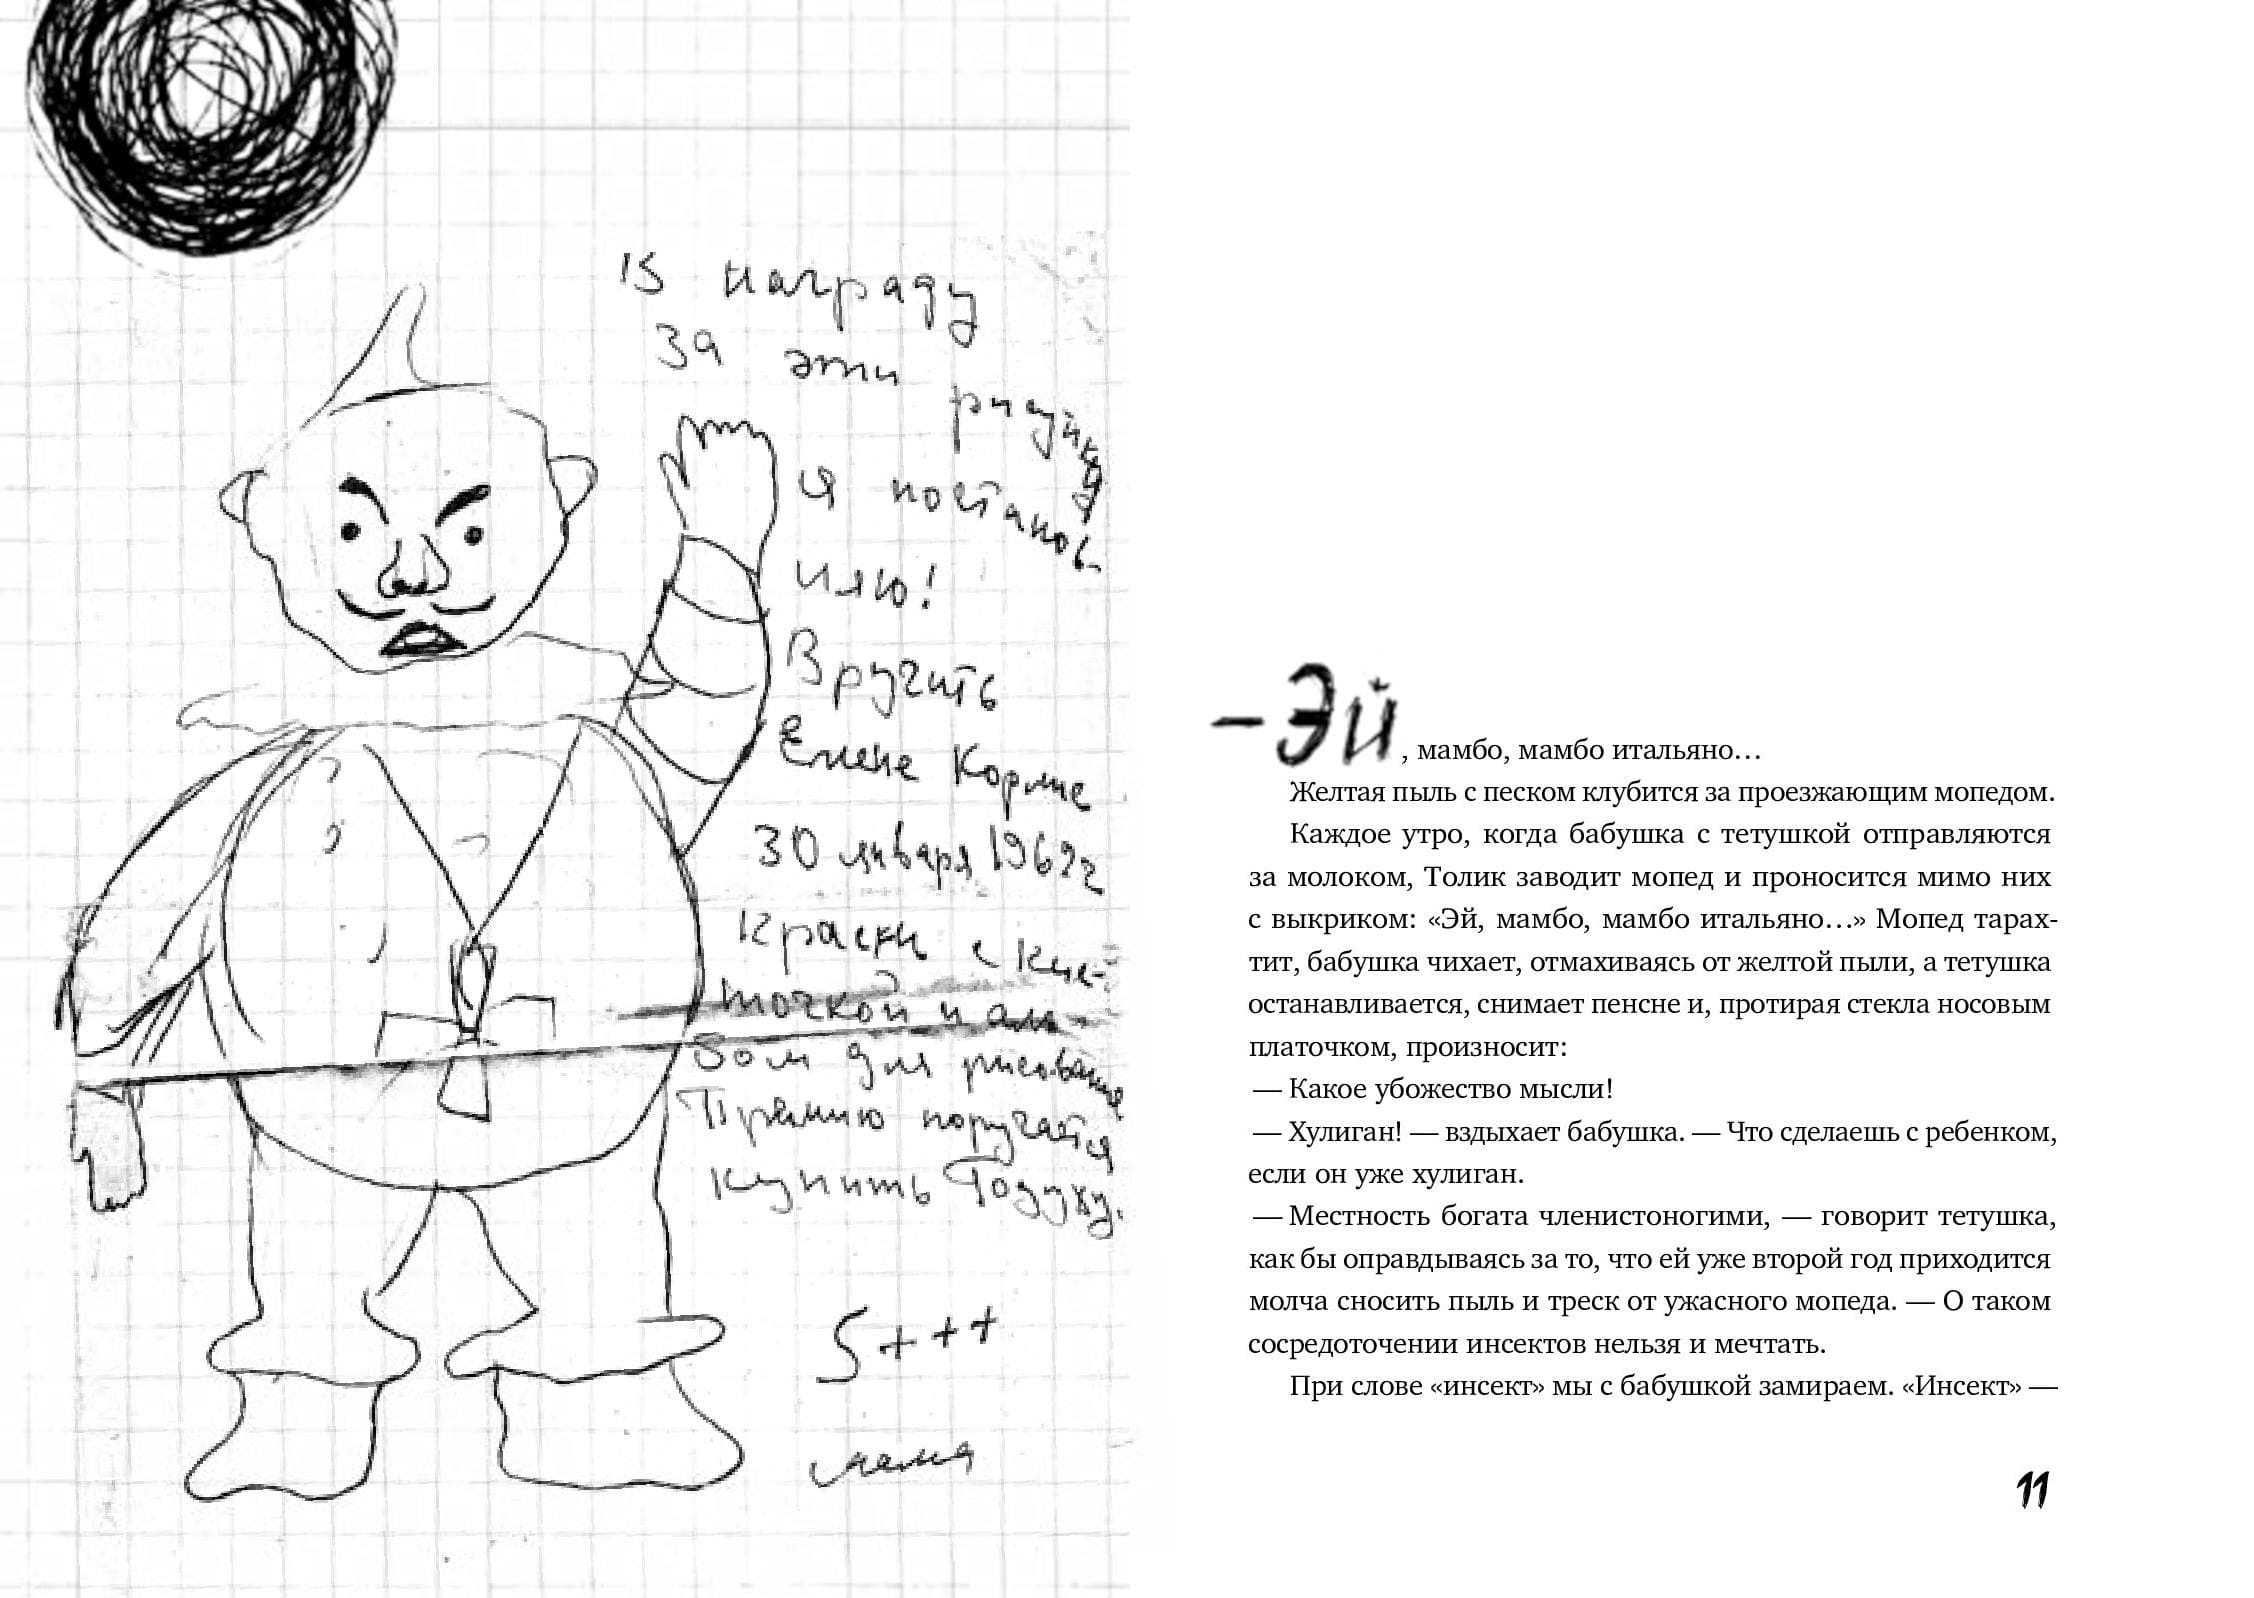 В награду
за эти
рисунки
я постанов-
ляю!
Вручить
Елене Корме
30 января 1969 г
Краски с кис-
точкой и аль-
бом для рисования
Премию поручается
купить Годуху.
5+++
мама
— Эй, мамбо, мамбо итальяно…
Желтая пыль с песком клубится за проезжающим мопедом.
Каждое утро, когда бабушка с тетушкой отправляются
за молоком, Толик заводит мопед и проносится мимо них
с выкриком: «Эй, мамбо, мамбо итальяно…» Мопед тарах-
тит, бабушка чихает, отмахиваясь от желтой пыли, а тетушка
останавливается, снимает пенсне и, протирая стекла носовым
платочком, произносит:
— Какое убожество мысли!
— Хулиган! — вздыхает бабушка. — Что сделаешь с ребенком,
если он уже хулиган.
— Местность богата членистоногими, — говорит тетушка,
как бы оправдываясь за то, что ей уже второй год приходится
молча сносить пыль и треск от ужасного мопеда. — О таком
сосредоточении инсектов нельзя и мечтать.
При слове «инсект» мы с бабушкой замираем. «Инсект» —
11